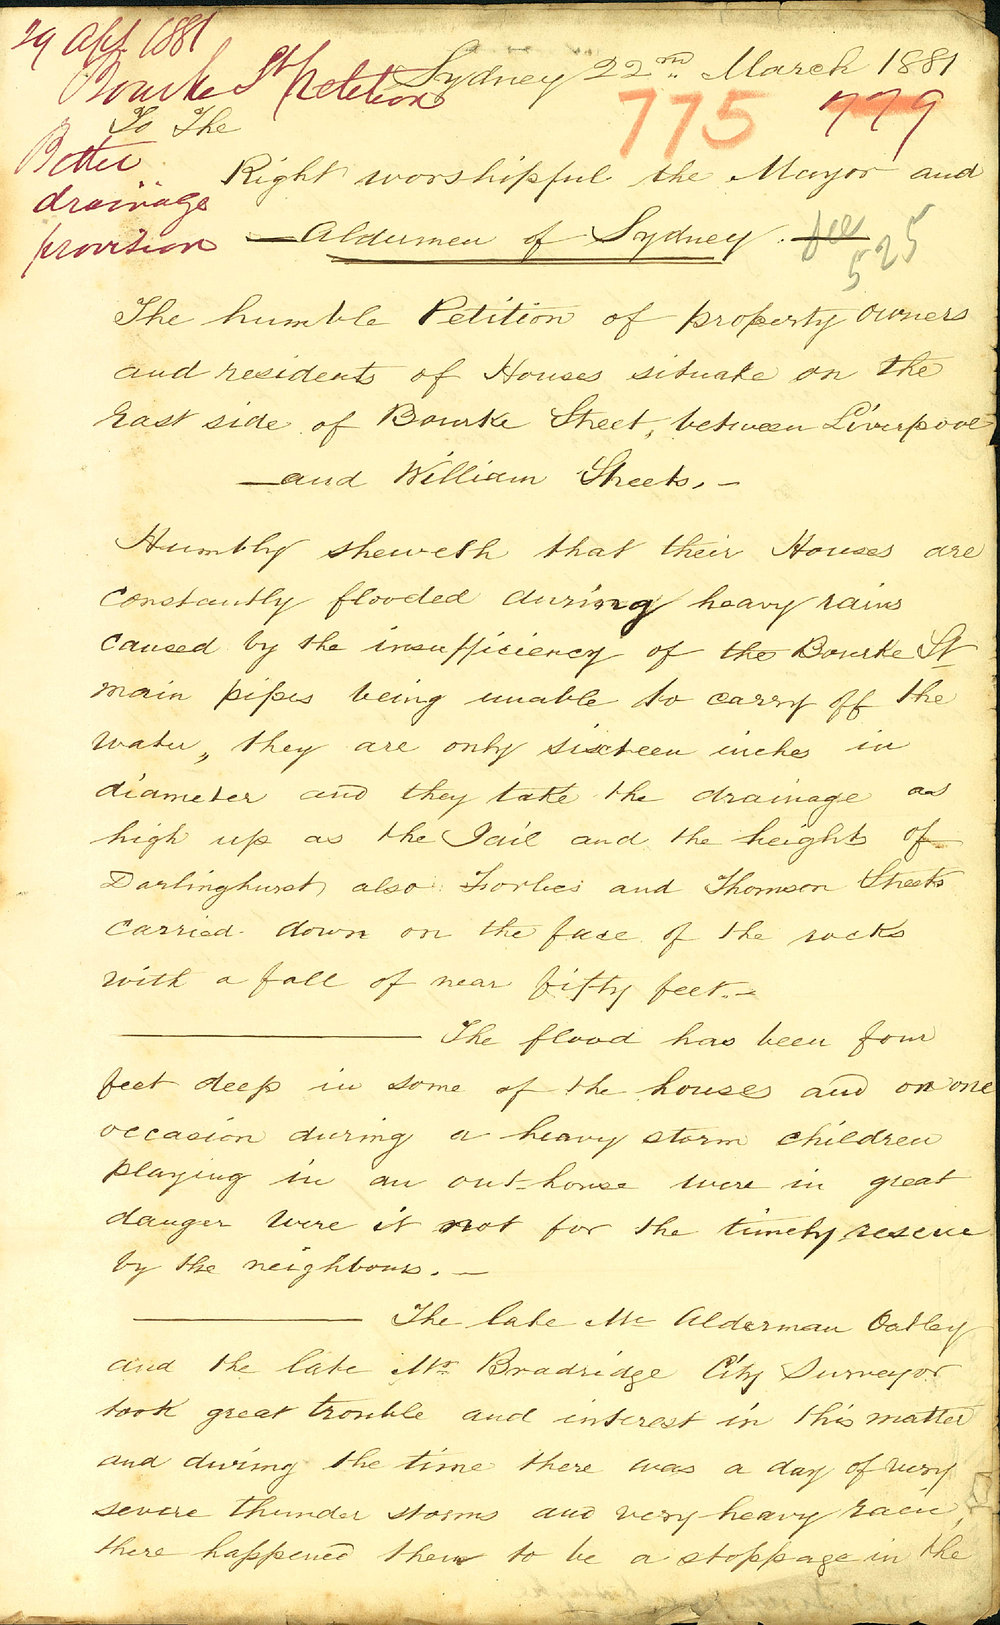 29 Apl 1881
Bourke St Petition
Better
drainage
provision
Sydney 22nd March 1881
775 779
To The
Right worshipful the Mayor and
Aldermen of Sydney.
525
The humble Petition of property owners
and residents of Houses situate on the
East side of Bourke Street, between Liverpool
and William Streets.
Humbly sheweth that their Houses are
constantly flooded during heavy rains
caused by the insufficiency of the Bourke St
main pipes being unable to carry off the
water, they are only sixteen inches in
diameter and they take the drainage as
high up as the Jail and the heights of
Darlinghurst, also Forbes and Thomson Streets
carried down on the face of the rocks
with a fall of near fifty feet.
The flood has been four
feet deep in some of the houses and on one
occasion during a heavy storm children
playing in an out-house were in great
danger were it not for the timely rescue
by the neighbours.
The late Mr Alderman Oatley
and the late Mr Bradridge City Surveyor
took great trouble and interest in this matter
and during the time there was a day of very
severe thunder storms and very heavy rain,
there happened then to be a stoppage in the